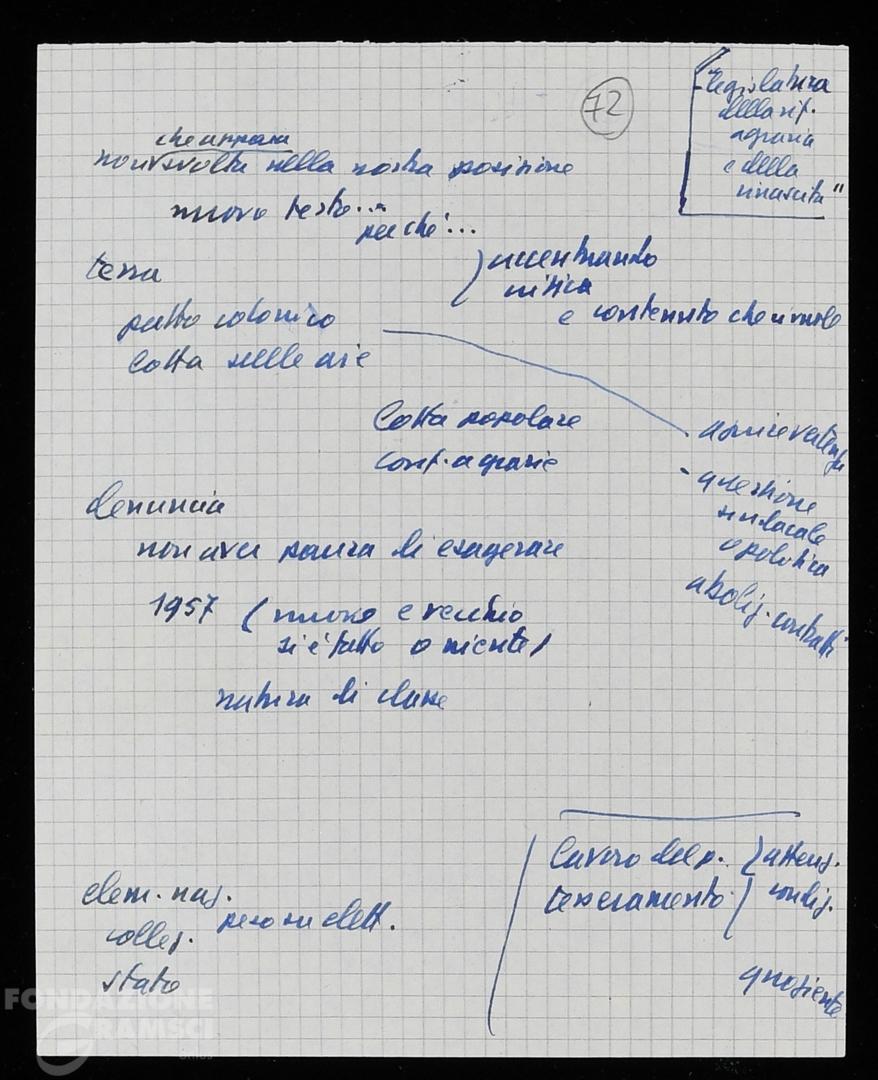 72
"legislatura
della rif.
agraria
e della
rinascita"
che appara
non svolta nella nostra posizione
nuovo testo...
perché...
terra
accentuando
critica
e contenuto che si vuole
patto colonico
lotta nelle aie
lotta popolare
conf. agrarie
questione
sindacale
o politica
aboliz. contratti
denuncia
non aver paura di esagerare
1957 (nuovo e vecchio
si è fatto o niente)
natura di classe
lavoro del p.
attenz.
tesseramento
condiz.
quoziente
elem. naz.
colleg. peso su elett.
stato
FONDAZIONE
GRAMSCI
onlus